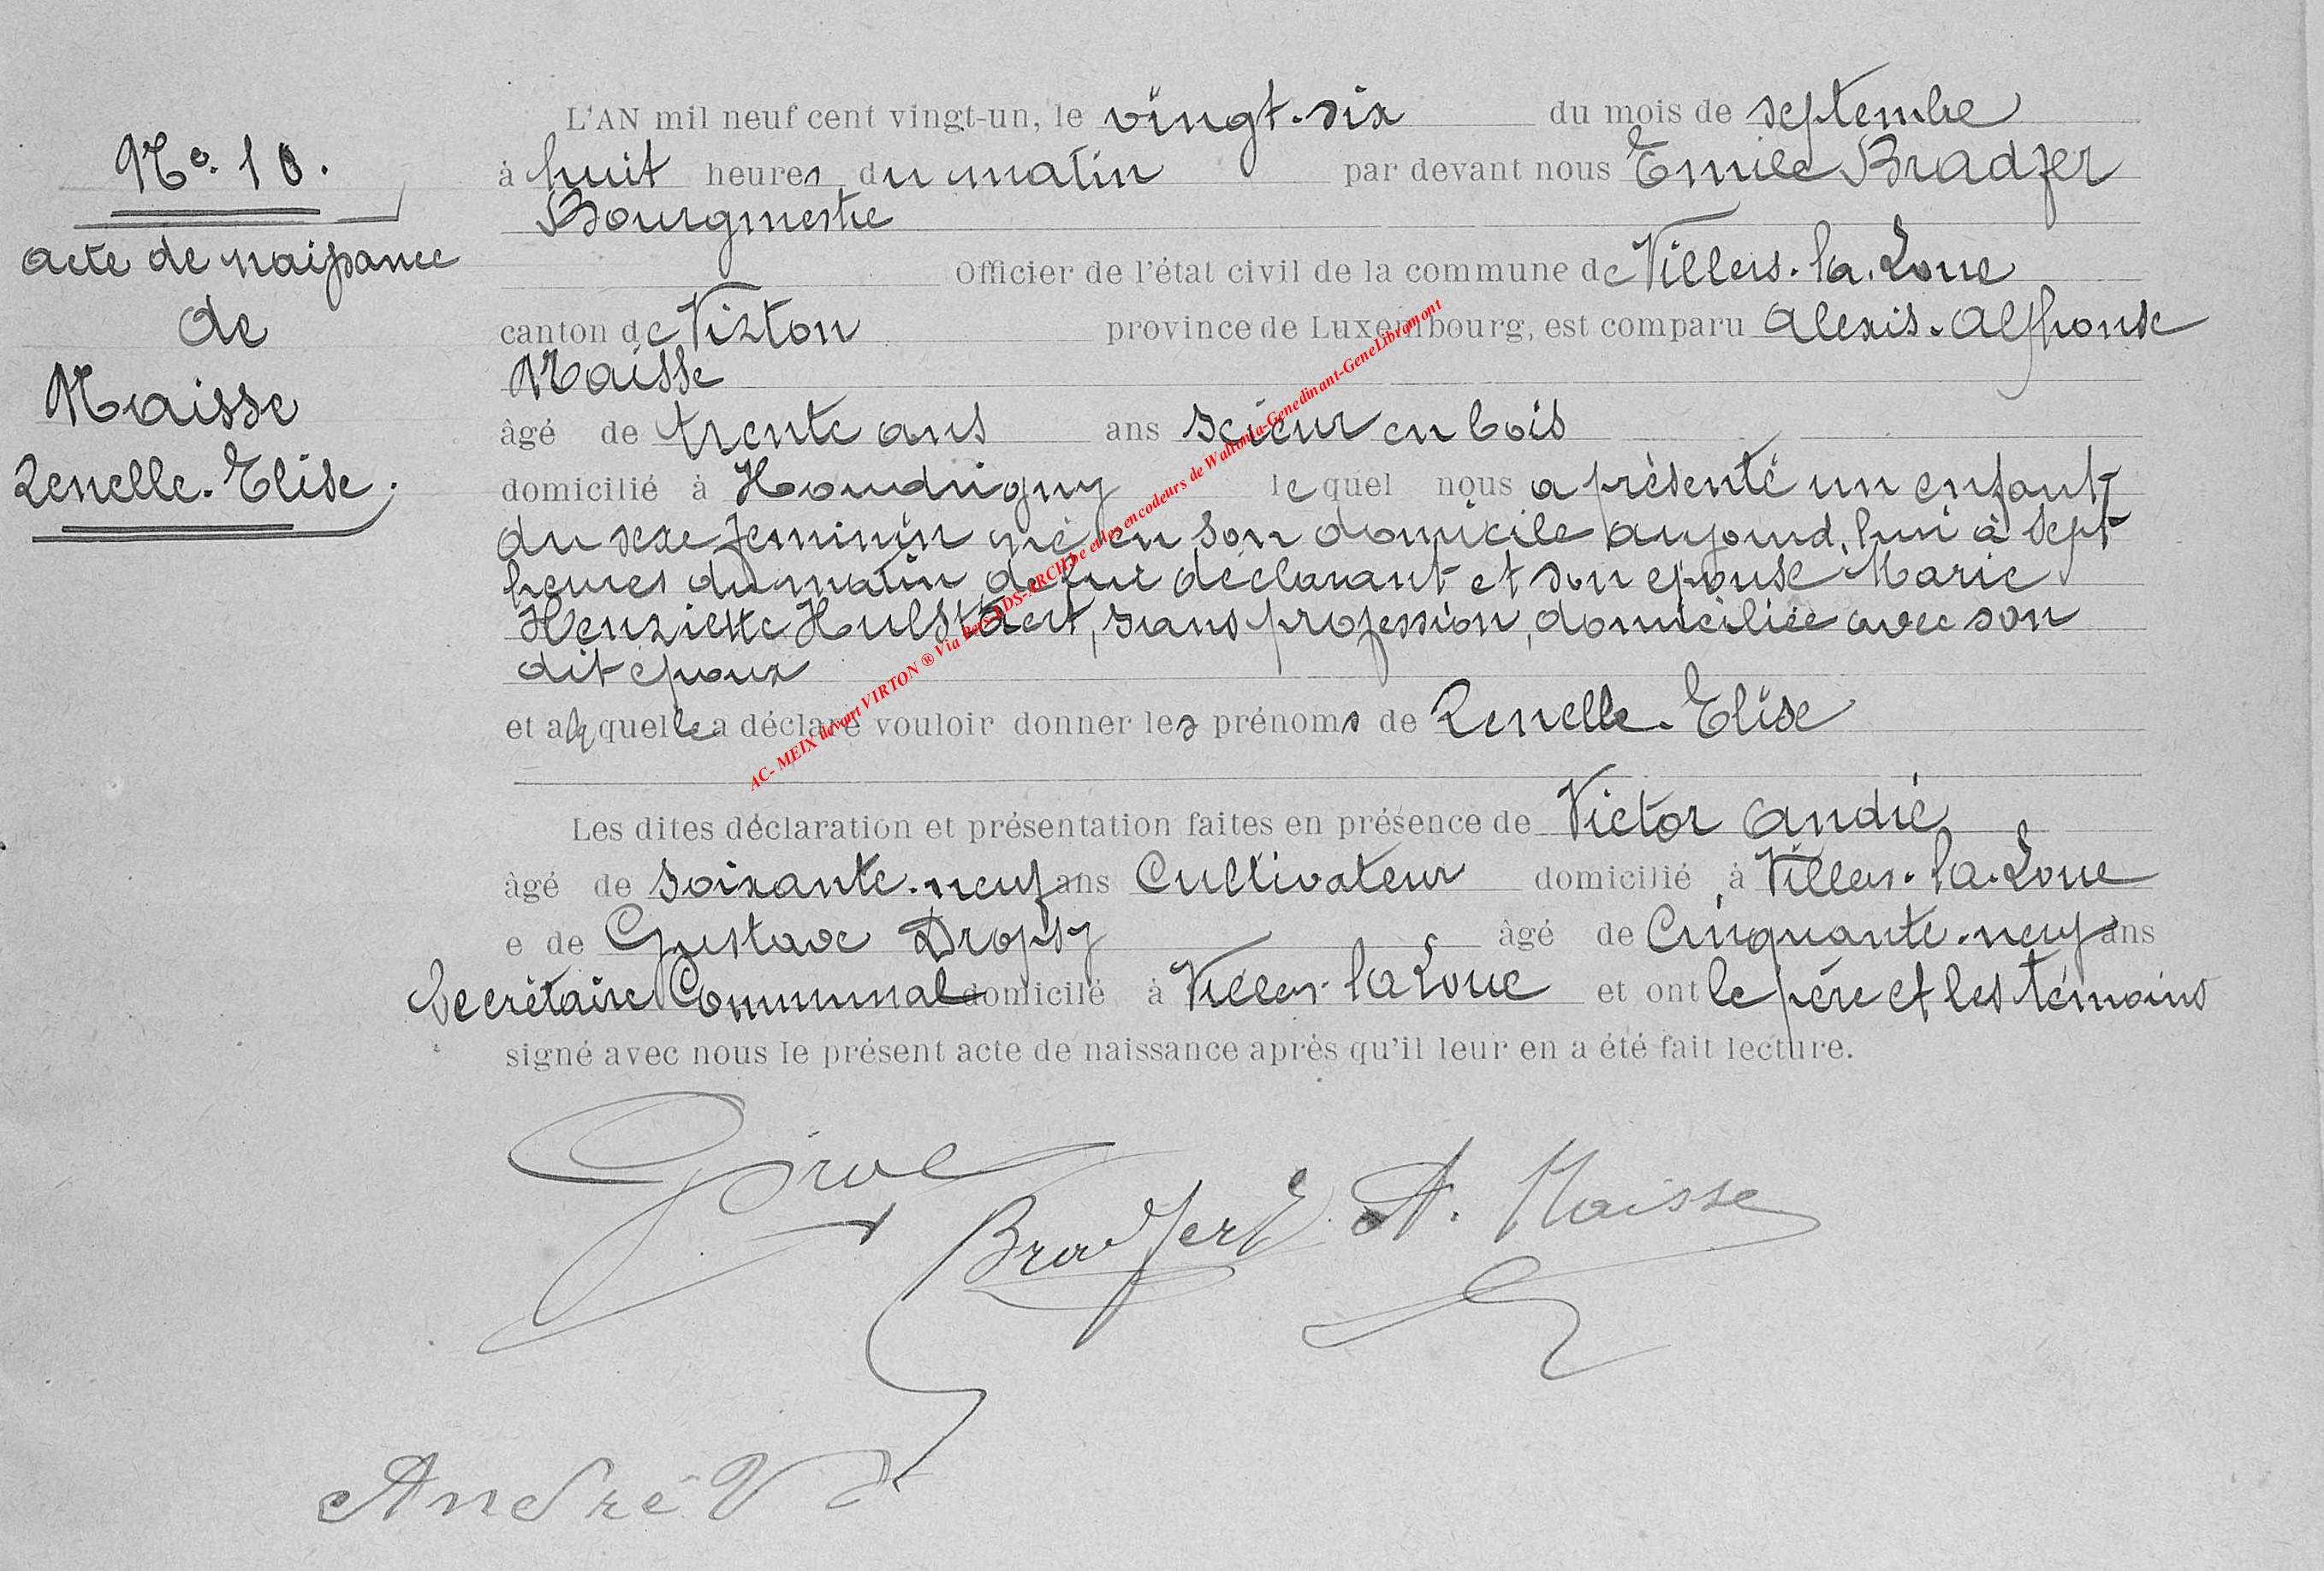 No. 10.
acte de naissance
de
Maisse
Zenelle. Elise.
L'AN mil neuf cent vingt-un, le vingt-six du mois de septembre
à huit heures du matin par devant nous Emile Bradfer
Bourgmestre
Officier de l'état civil de la commune de Villers-la-Loue
canton de Virton province de Luxembourg, est comparu Alexis-Alphonse
Maisse
âgé de trente ans ans scieur en bois
domicilié à Houdrigny lequel nous a présenté un enfant
du sexe feminin né en son domicile aujourd'hui à sept
heures du matin de lui déclarant et son épouse Marie
Henriette Hulstaert, sans profession, domiciliée avec son
dit époux
et a déclaré vouloir donner les prénoms de Zenelle. Elise
Les dites déclaration et présentation faites en présence de Victor André
âgé de soixante-neuf ans Cultivateur domicilié à Villers-la-Loue
e de Gustave Dropsy âgé de Cinquante-neuf ans
Secrétaire Communal domicilé à Villers-la Loue et ont le père et les témoins
signé avec nous le présent acte de naissance après qu'il leur en a été fait lecture.
Bradfer E. A. Maisse
André V
AC- MEIX devant VIRTON ® Via
encodeurs de Wallonia-Genedinant-GeneLibramont